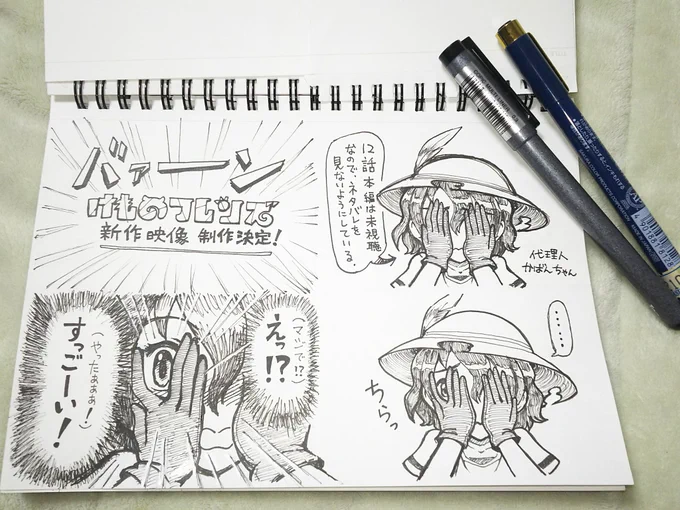 12話本編は未視聴
なので、ネタバレを
見ないようにしている。
代理人
かばんちゃん
‥‥‥
ちらっ
バァーン
けものフレンズ
新作映像 制作決定!
えっ!?
(マジで!?)
すっごーい!
(やったぁぁぁ!)